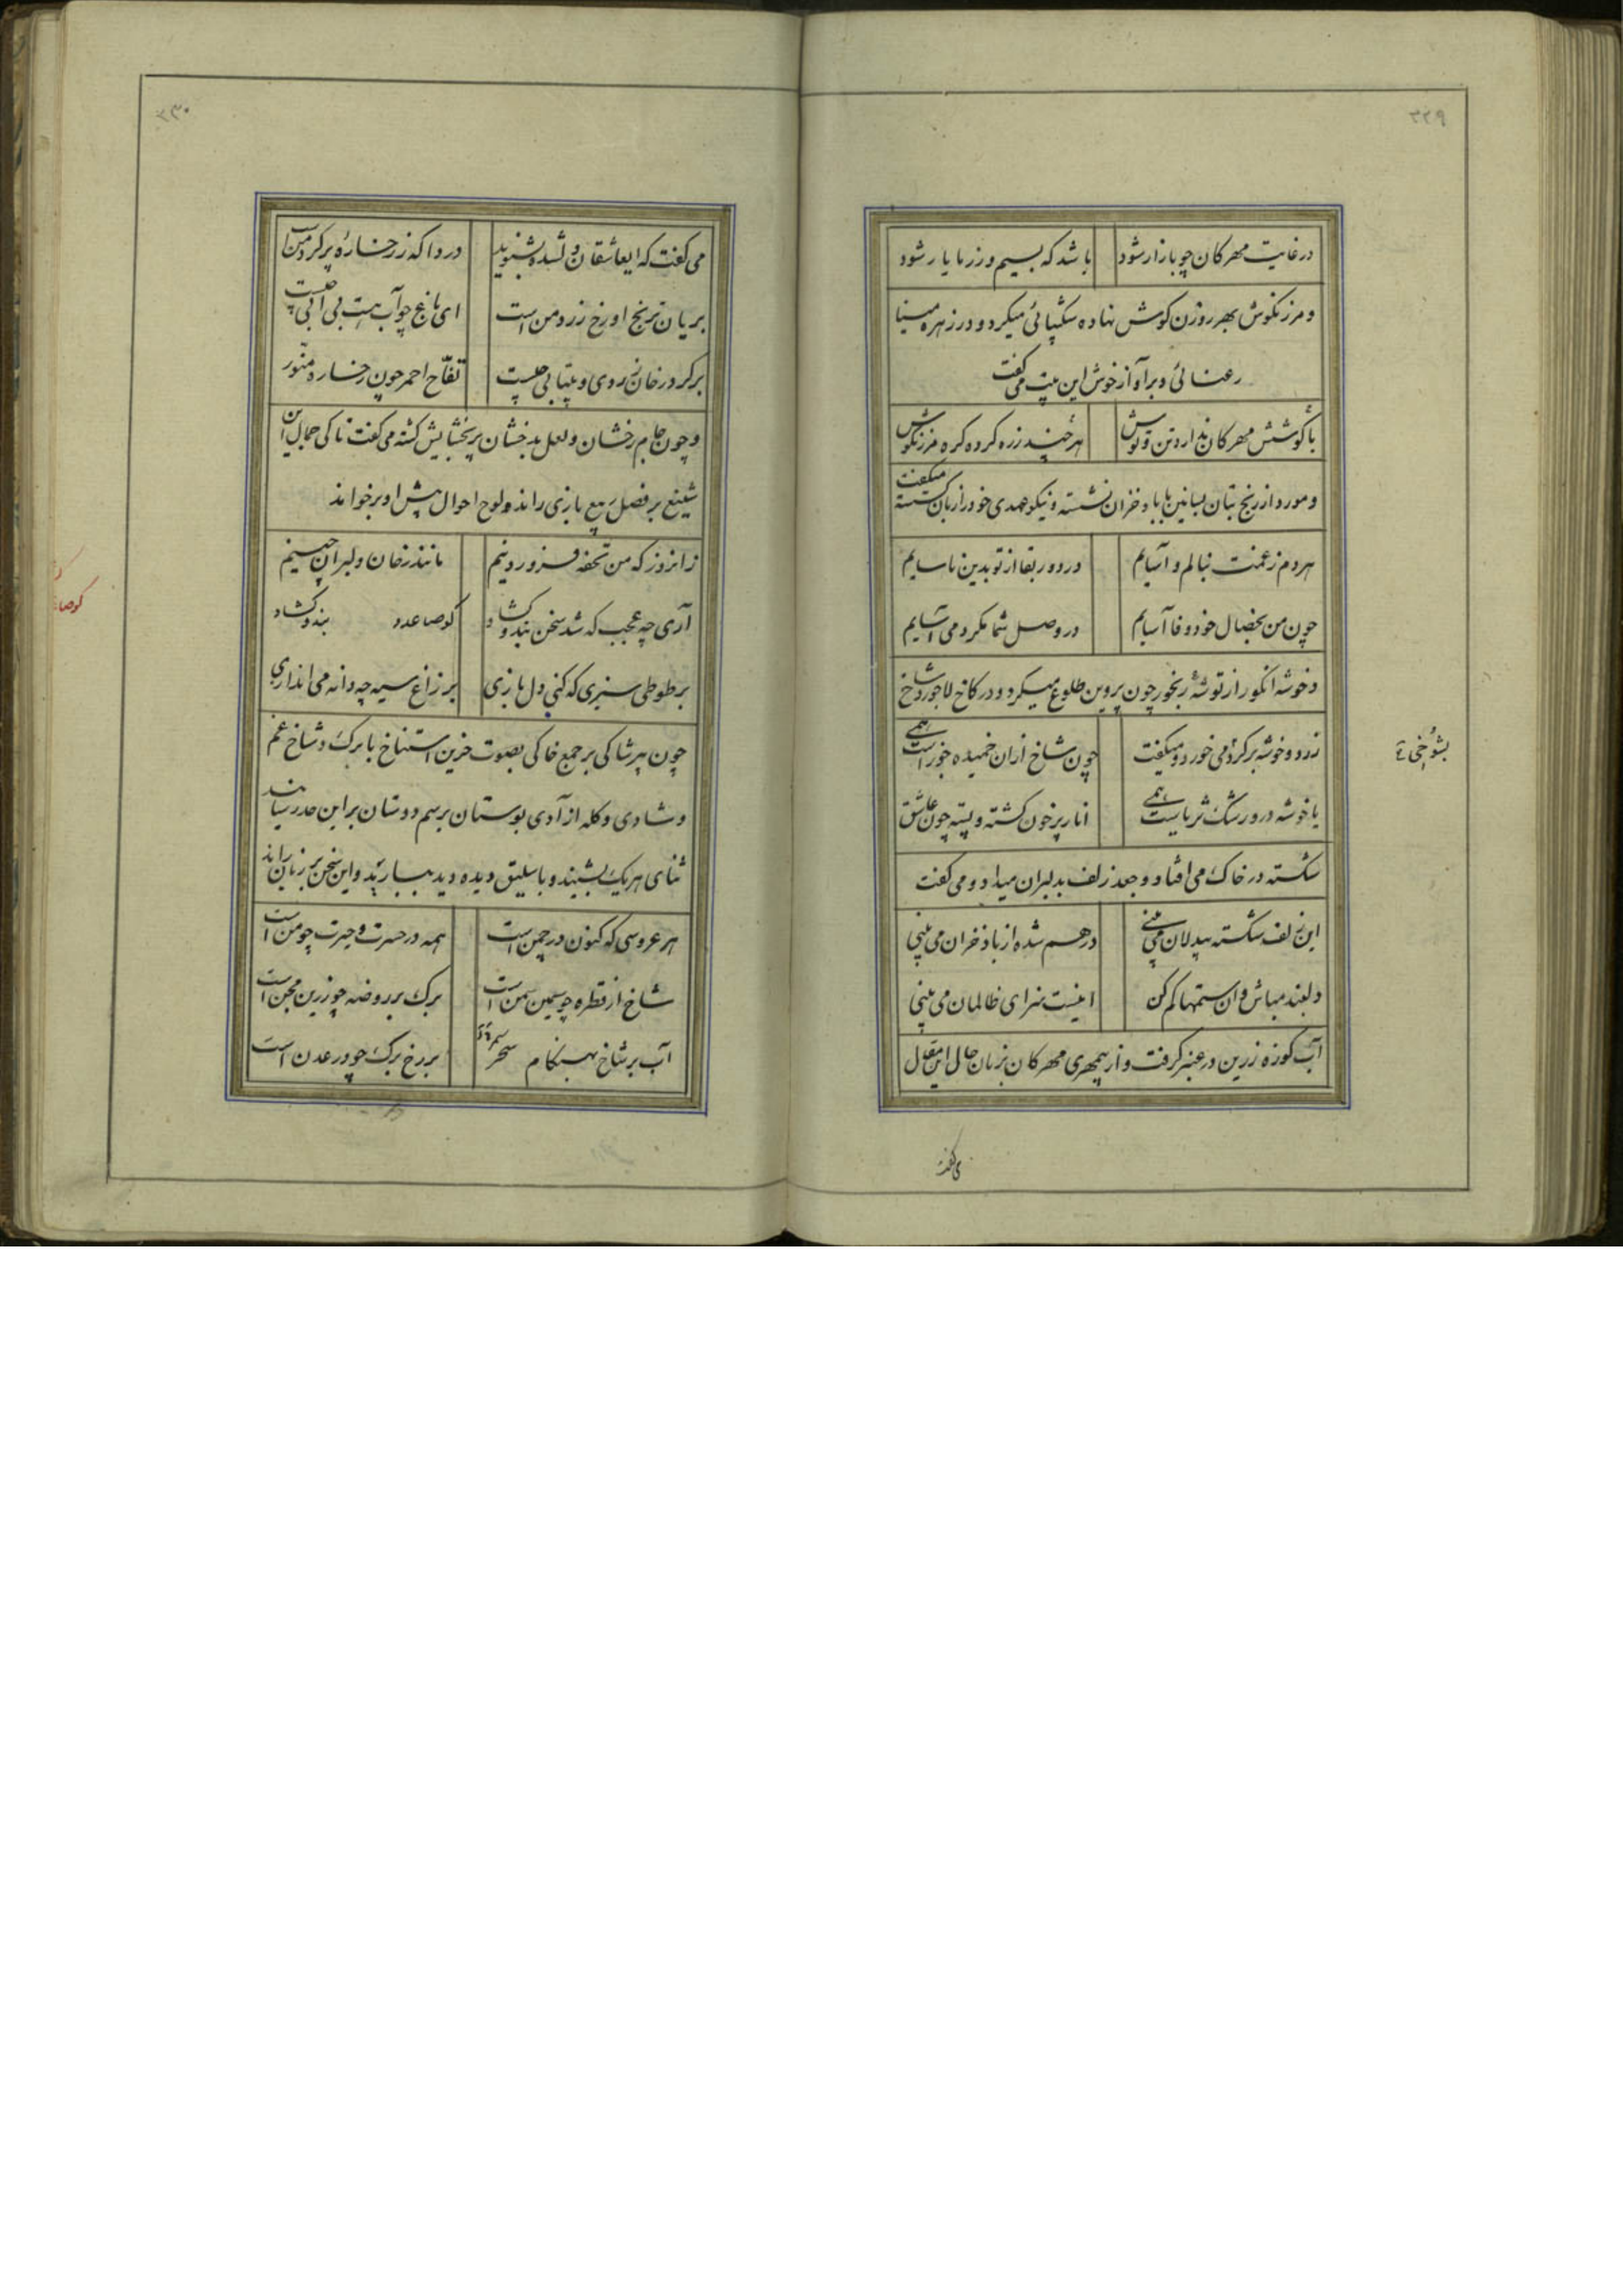 ۳۲۹
در غایت مهرکان چو بازار شود باشد که بسیم و زر ما یار شود
و مرزنکوش بهر روزن کوش نهاده شکیبائی میکرد و در زهره مینا
رعنائی و بر آواز خوش این بیت می گفت
با کوشش مهرکان ندارد تن و توش هر چند زره کرده کره مرزنکوش
و مورد از رنج بتان بساتین با باد خزان نشسته و نیکو عهدی خود را زبان میکفت
هر دم ز غمت بنالم و آسایم در دور بقا از تو بدین ناسایم
چون من بخصال خود وفا آسایم در وصل شما مکر دمی آسایم
و خوشه انکور از توشهٔ رنجور چون پروین طلوع میکرد و در کاخ لاجورد شاخ
زرد و خوشه بر کرد می خورد و میکفت چون شاخ ازان خمیده جوزاست همی
یا خوشه درو رشک ثریاست همی انار پر خون کشته و پسته چون عاشق
شکسته در خاک می افتاد و جعد زلف بدلبران میداد و می کفت
این زلف شکسته بیدلان می بینی درهم شده از باد خزان می بینی
دلبند مباش و ان ستمها کم کن اینست سزای ظالمان می بینی
آب کوزه زرین در عنبر کرفت و از بیمهری مهرکان بزبان حال این مقال
می کفت
۳۳۰
می کفت که ایعاشقان دلشده بشنوید دردا که ز رخسارهٔ پر کرد منست
بریان ترنج او رخ زرد من است ای باغ چو آب هست بی آبی چیست
بر کرد رخان زردی و بیتابی چیست تفّاح احمر چون رخساره منوّر
و چون جام رخشان و لعل بدخشان پر بخشایش کشته می کفت تا کی جمال این
شینع بر فصل ربیع بازی راند و لوح احوال پیش او بر خواند
زانروز که من تحفه فروردینم مانند رخان دلبران چینم
آری چه عجب که شد سخن بند و کشاد کوصاعدد بند و کشاد
بر طوطی سبزی که کنی دل بازی بر زاغ سیه چه دانه می اندازی
چون پیر شاکی بر جمع خاکی بصوت حزین استنباخ با برک و شاخ غم
و شادی و کله از آدی بوستان برسم دوستان بر این صدر رسانند
ثنای هر یک بشنیند و باسلیق دیده دید بسبارید و این سخن بر زبان راند
هر عروسی که کنون در چمن است همه در حسرت و حیرت چو من است
شاخ از قطره چو سیمین سمن است برک بر روضه چو زرین مجن است
آب بر شاخ بهنکام سحر بر رخ برک چو در عدن است